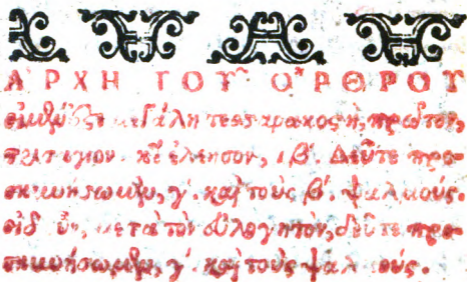 ἈΡΧΗ ΤΟΥ ὌΡΘΡΟΥ
μεγάλη τεσσαρακοστή, πρῶτον,
τρισάγιον. κὲ ἐλέησον, ιβ΄. Δεῦτε προ-
σκυνήσωμεν, γ΄. καὶ τοὺς β΄. ψαλμούς.
μετὰ τὸν εὐλογητὸν, δεῦτε προ-
σκυνήσωμεν, γ΄. καὶ τοὺς ψαλμούς.